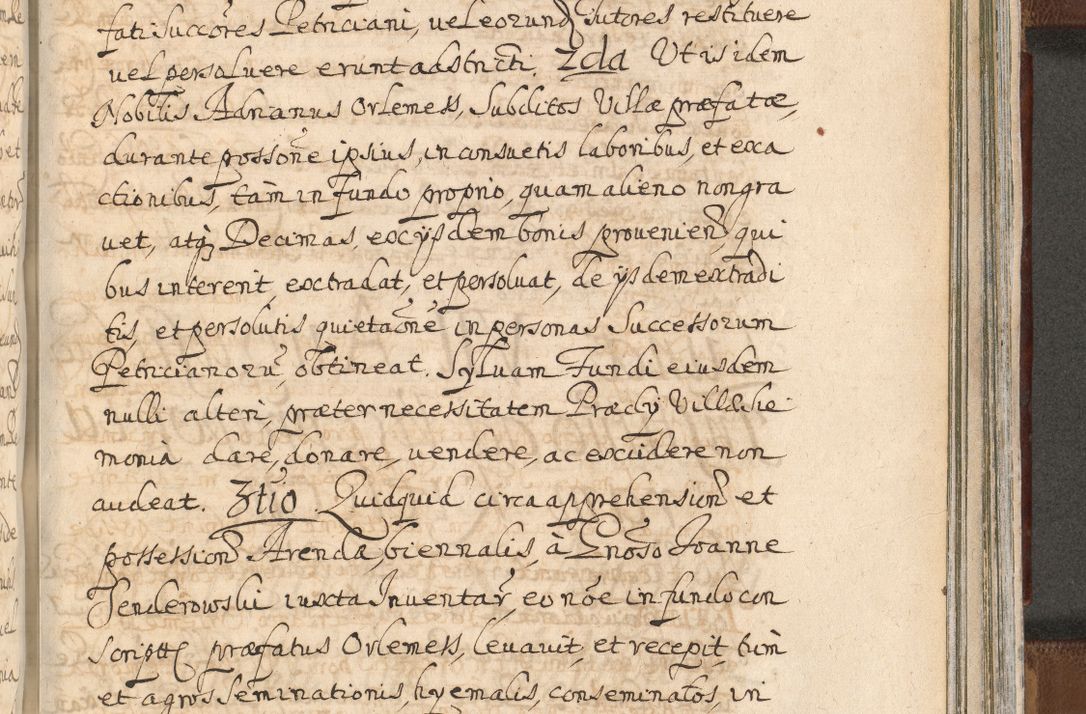 fati Succõres Petriciani, vel eorundꝫ Tutores restituere
vel persolvere erunt adstricti. 2da Ut is idem
Nobilis Adrianus Orlemess, Subditos Villæ præfatæ,
durante possoñe ipsius, in consuetis laboribus, et exa
ctionibus, tam in fundo proprio, quam alieno non gra
vet, atqꝫ Decimas, ex ijsdem bonis provenien, qui
bus intererit, extradat, et persolvat, de ijsdem extradi
tis, et persolutis quietaõne in personas Successorum
Petricianorũ, obtineat. Sylvam Fundi eiusdem
nulli alteri, præter necessitatem Prædij Villæ Sie
monia dare, donare, vendere, ac excidere non
audeat. 3tio Quidquid circa apprehension et
possession Arendæ, biennalis, à Gnoso Joanne
Jenderowski iuxta Inventar, eo nõe in fundo con
script præfatus Orlemess, levavit, et recepit, tum
et agros Seminationis, hyemalis, conseminatos, in